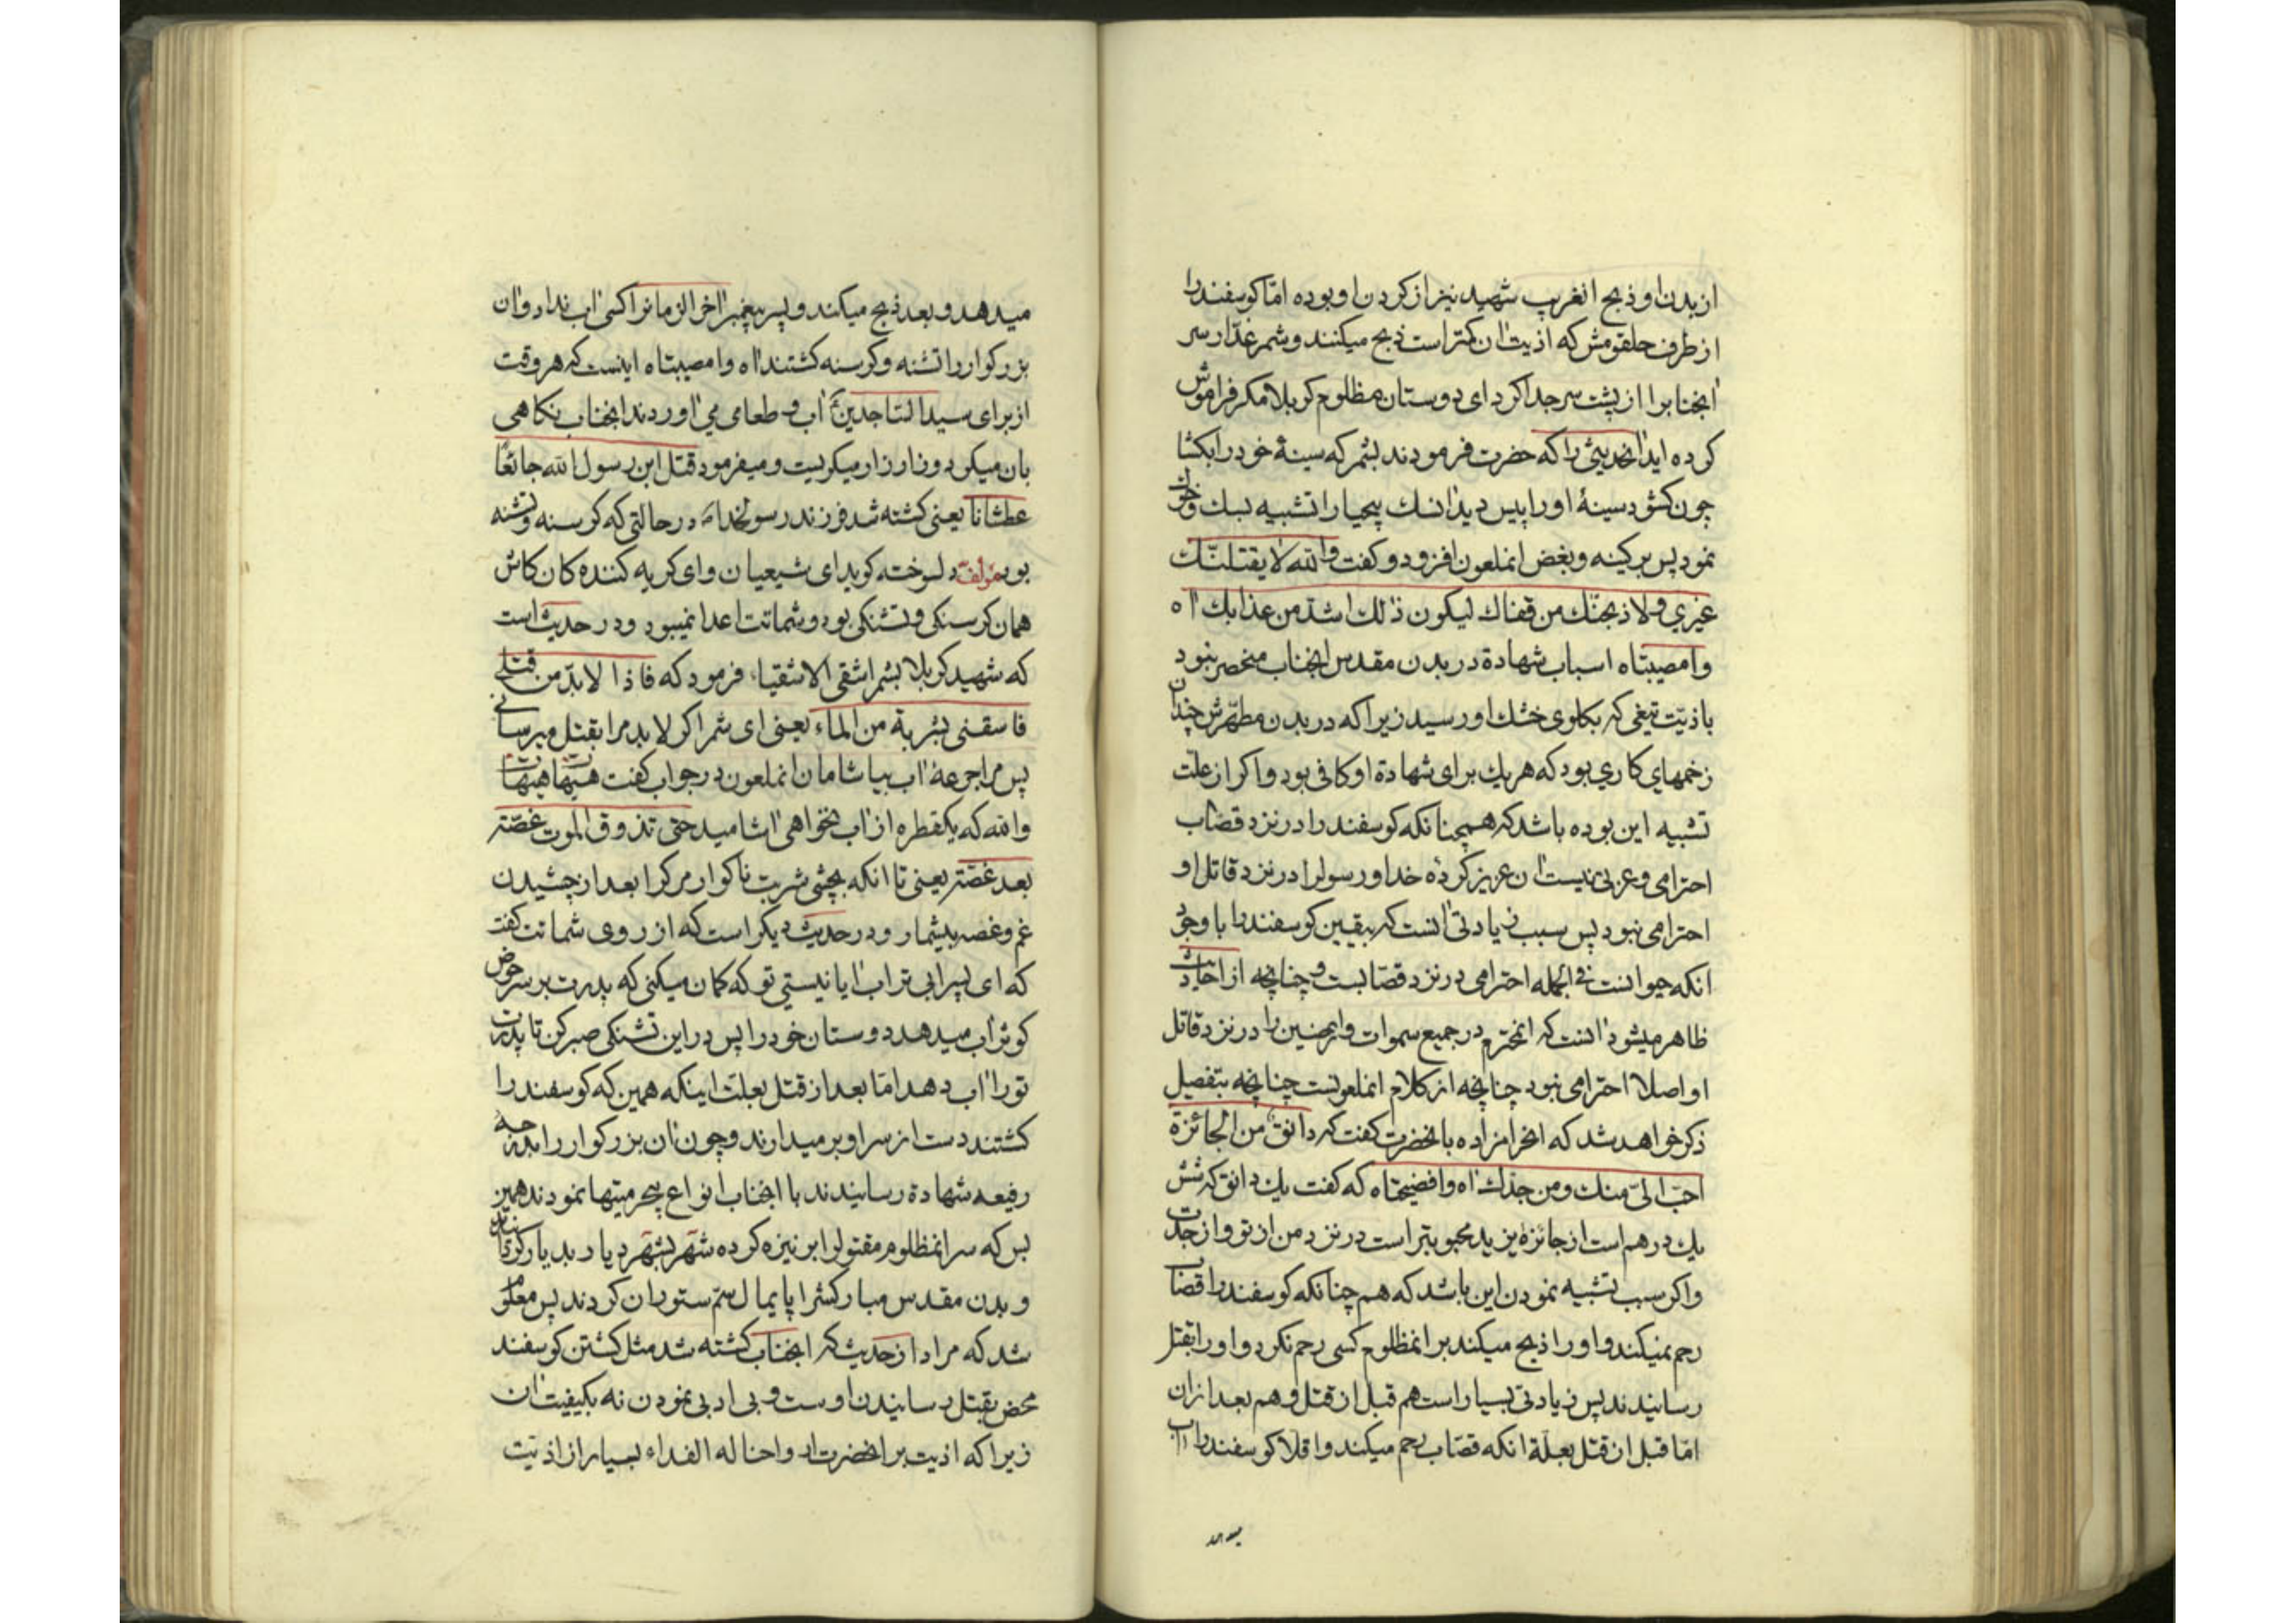 از بدن او و ذبح انغریب شهید نیز از کردن او بوده امّا کوسفند را
از طرف حلقومش که اذیت ان کمتر است ذبح میکنند و شمر غدّار سر
انجناب را از پشت سر جدا کرد ای دوستان مظلوم کربلا مکر فراموش
کرده اید انحدیثی را که حضرت فرمودند بشمر که سینهٔ خود را بکشا
چون کشود سینهٔ او را پیس دید انسك بیحیا را تشبیه بسك و خوك
نمود پس بر کینه و بغض انملعون افزود و کفت والله لا یقتلنّك
غیري و لا ذبحنّك من قفاك لیکون ذلك اشدّ من عذابك اه
وا مصیبتاه اسباب شهادة در بدن مقدس انجناب منحصر نبود
باذیّت تیغی که بکلوی خشك او رسید زیرا که در بدن مطهّرش چندان
زخمهای کاري بود که هریك برای شهادة او کافی بود و اکر از علّت
تشبیه این بوده باشد که همچنانکه کوسفند را در نزد قصّاب
احترامی و عزّتی نیست ان عزیز کردهٔ خدا و رسول را در نزد قاتل او
احترامی نبود پس سبب زیادتی انست که بیقین کوسفند را با وجود
انکه حیوانست فی الجمله احترامی در نزد قصّابست و چنانچه از احادیث
ظاهر میشود انست که انمحترم در جمیع سموات و ارضین را در نزد قاتل
او اصلا احترامی نبود چنانچه از کلام انملعونست چنانچه بتفصیل
ذکر خواهد شد که انحرامزاده بانحضرت کفت که دانق من الجائزة
احبّ الیّ منك و من جدّك اه وا فضیحتاه که کفت یك دانق که شش
یك درهم است از جائزهٔ یزید محبوبتر است در نزد من از تو و از جدّت
و اکر سبب تشبیه نمودن این باشد که هم چنانکه کوسفند را قصّاب
رحم نمیکند و او را ذبح میکند بر انمظلوم کسی رحم نکرد و او را بقتل
رسانیدند پس زیادتی بسیار است هم قبل از قتل و هم بعد از ان
امّا قبل از قتل بعلّة انکه قصّاب رحم میکند و اقلاّ کوسفند را اب
میدهد
میدهد و بعد ذبح میکند و پسر پیغمبر اخر الزمانرا کسی اب نداد و ان
بزرکوار را تشنه و کرسنه کشتند اه وا مصیبتاه اینست که هر وقت
از برای سید الساجدین اب و طعامی می اوردند انجناب نکاهی
بان میکرد و زار زار میکریست و میفرمود قتل ابن رسول الله جائعًا
عطشانا یعنی کشته شد فرزند رسولخدا در حالتی که کرسنه و تشنه
بود مؤلّف دلسوخته کوید ای شیعیان و ای کریه کننده کان کاش
همان کرسنکی و تشنکی بود و شماتت اعدا نمیبود و در حدیث است
که شهید کربلا بشمر اشقی الاشقیاء فرمود که فاذا لا بدّ من قتلی
فاسقنی بشربة من الماء یعنی ای شمر اکر لابد مرا بقتل میرسانی
پس مرا جرعهٔ اب بیاشامان انملعون در جواب کفت هیهات هیهات
والله که یکقطره از اب نخواهی اشامید حتی تذوق الموت غصّة
بعد غصّة یعنی تا انکه بچشی شربت ناکوار مرك را بعد از چشیدن
غم و غصه بیشمار و در حدیث دیکر است که از روی شماتت کفت
که ای پسر ابی تراب ایا نیستی تو که کمان میکنی که پدرت بر سر حوض
کوثر اب میدهد دوستان خود را پس در این تشنکی صبر کن تا پدرت
تو را اب دهد امّا بعد از قتل بعلّت اینکه همین که کوسفند را
کشتند دست از سر او بر میدارند و چون ان بزرکوار را بدرجهٔ
رفیعه شهادة رسانیدند با انجناب انواع بیحرمیتها نمودند همین
بس که سر انمظلوم مقتول را بر نیزه کرده شهر بشهر دیار بدیار کردانیدند
و بدن مقدس مبارکش را پایمال سم ستوران کردند پس معلوم
شد که مراد از حدیث که انجناب کشته شد مثل کشتن کوسفند
محض بقتل رسانیدن اوست و بی ادبی نمودن نه بکیفیت ان
زیرا که اذیت بر انحضرت ارواحنا له الفداء بسیار از اذیّت